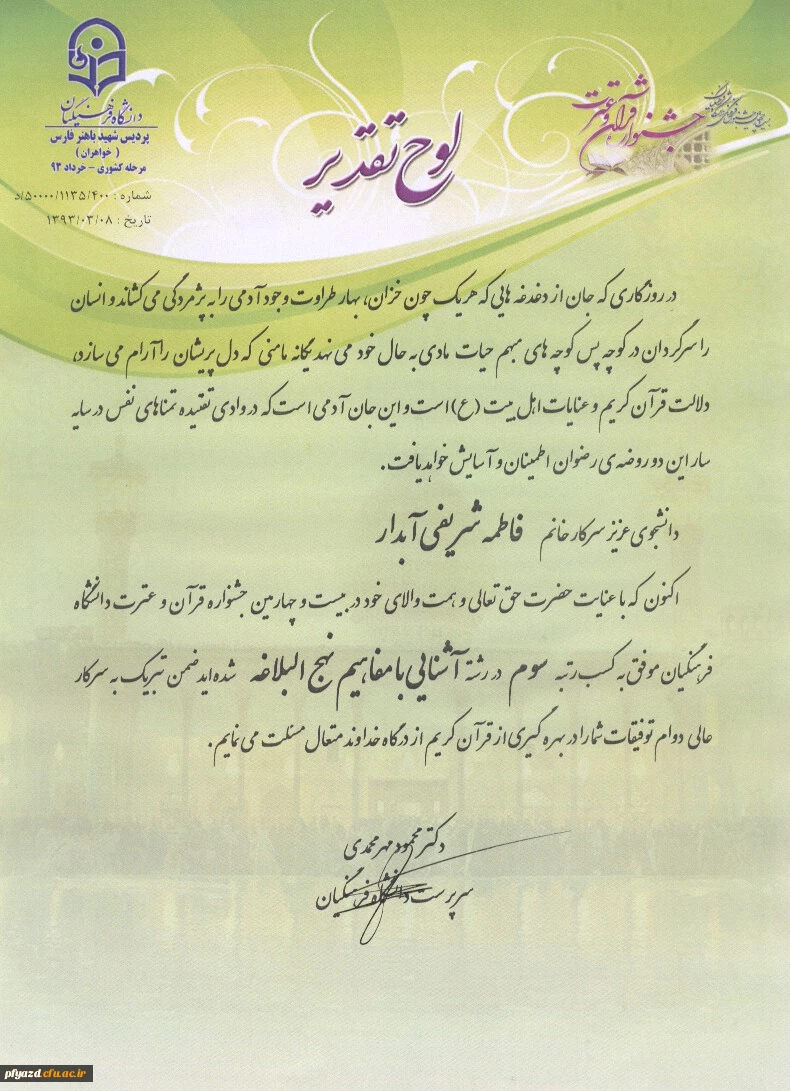 دانشگاه فرهنگیان
پردیس شهید باهنر فارس
( خواهران )
مرحله کشوری - خرداد ۹۳
شماره : ۵۰۰۰۰/۱۱۳۵/۴۰۰/د
تاریخ : ۱۳۹۳/۰۳/۰۸
جشنواره قرآن و عترت
لوح تقدیر
در روزگاری که جان از دغدغه هایی که هر یک چون خزان، بهار طراوت وجود آدمی را به پژمردگی می کشاند و انسان
را سرگردان در کوچه پس کوچه های مبهم حیات مادی به حال خود می نهد یگانه مامنی که دل پریشان را آرام می سازد،
دلالت قرآن کریم و عنایات اهل بیت (ع) است و این جان آدمی است که در وادی تفتیده تمناهای نفس در سایه
سار این دو روضه ی رضوان اطمینان و آسایش خواهد یافت.
دانشجوی عزیز سرکار خانم فاطمه شریفی آبدار
اکنون که با عنایت حضرت حق تعالی و همت والای خود در بیست و چهارمین جشنواره قرآن و عترت دانشگاه
فرهنگیان موفق به کسب رتبه سوم در رشته آشنایی با مفاهیم نهج البلاغه شده اید ضمن تبریک به سرکار
عالی دوام توفیقات شما را در بهره گیری از قرآن کریم از درگاه خداوند متعال مسئلت می نمایم.
دکتر محمود مهرمحمدی
سرپرست دانشگاه فرهنگیان
pfyazd.cfu.ac.ir